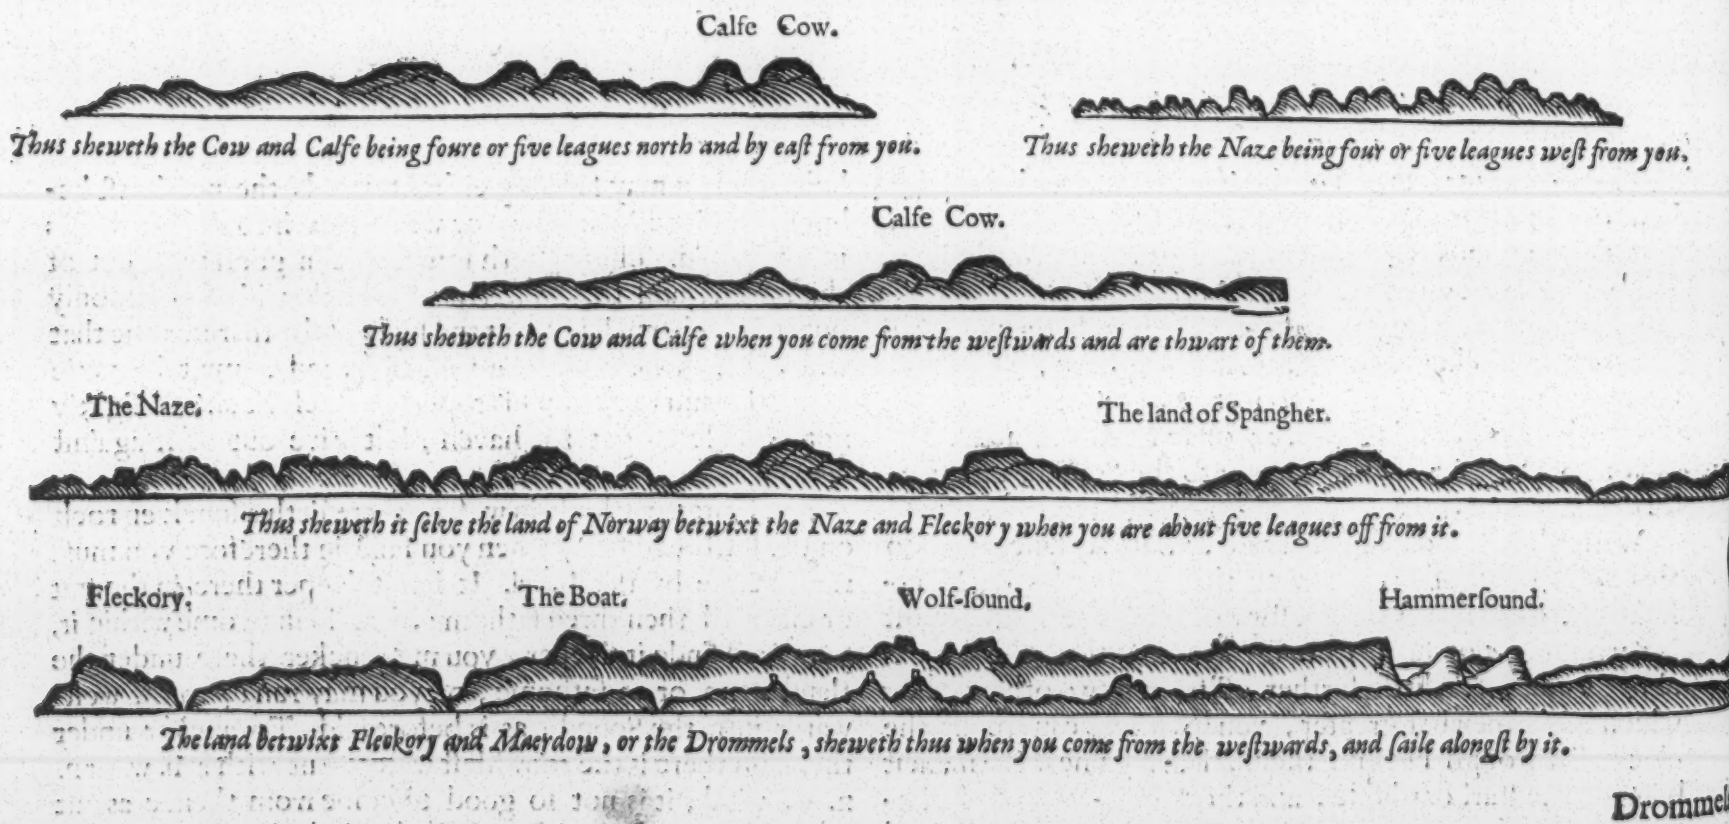 Calfe Cow.
Thus sheweth the Cow and Calfe being foure or five leagues north and by eaſt from you.
Thus sheweth the Naze being four or five leagues weſt from you.
Calfe Cow.
Thus sheweth the Cow and Calfe when you come from the weſtwards and are thwart of them.
The Naze.
The land of Spangher.
Thus sheweth it ſelve the land of Norway betwixt the Naze and Fleckory when you are about five leagues off from it.
Fleckory.
The Boat.
Wolf-ſound.
Hammerſound.
The land betwixt Fleckory and Maerdow, or the Drommels, sheweth thus when you come from the weſtwards, and ſaile alongſt by it.
Drommel